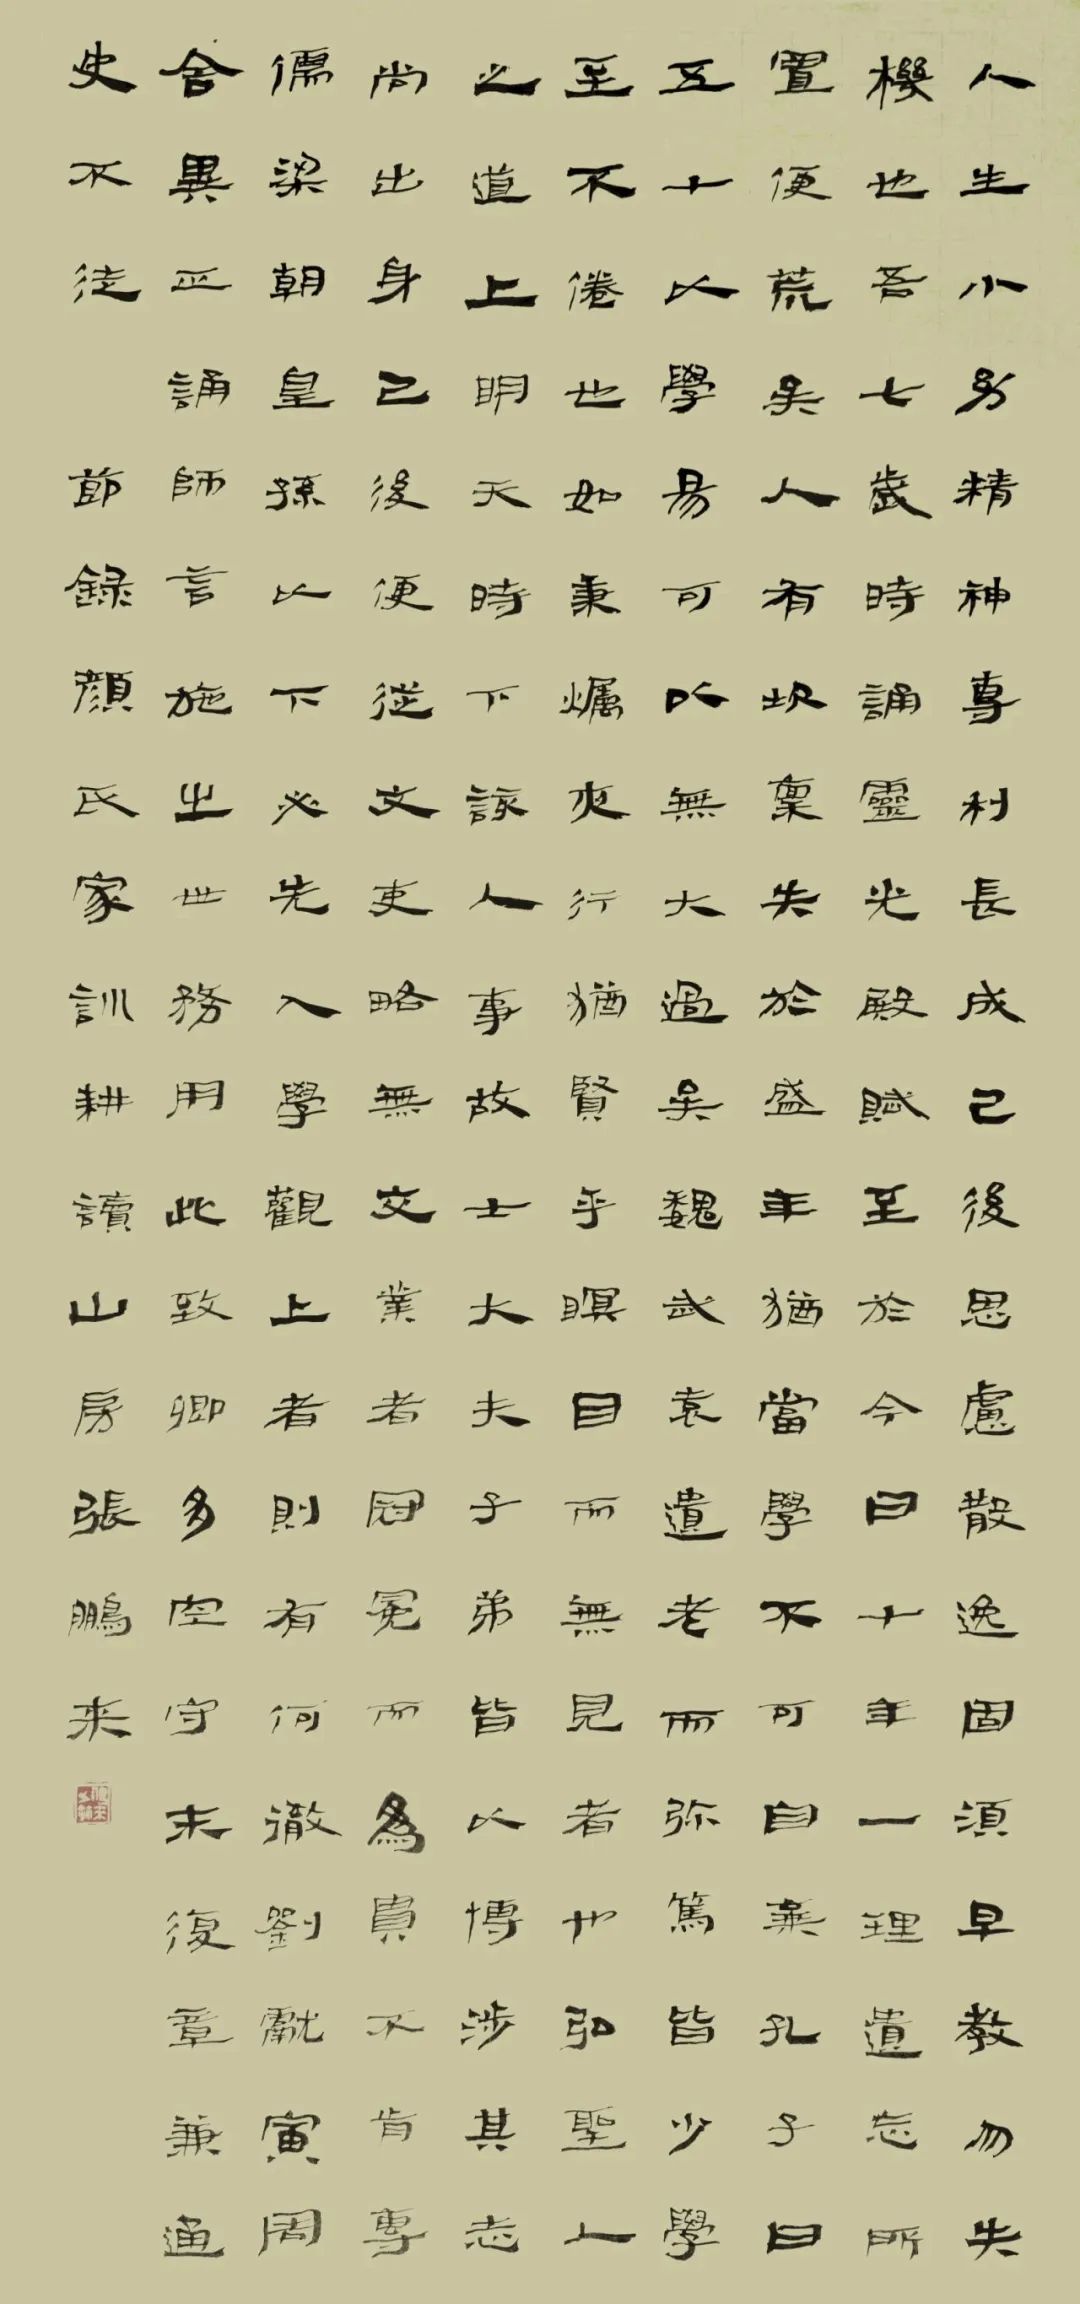 人生小幼精神專利長成已後思慮散逸固須早教勿失
機也吾七歲時誦靈光殿賦至於今日十年一理遺忘所
置便荒矣人有坎稟失於盛年猶當學不可自棄孔子曰
五十以學易可以無大過矣魏武袁遺老而弥篤皆少學
至不倦也如秉爥夜行猶賢乎瞑目而無見者也弘聖人
之道上明天時下該人事故士大夫子弟皆以博涉其志
尚出身已後便從文吏略無文業者冠冕而為貴不肯專
儒梁朝皇孫以下必先入學觀上者則有何徹劉獻寅周
舍異正誦師言施之世務用此致卿多空守末復章兼通
史不徒 節錄顏氏家訓耕讀山房張鵬來